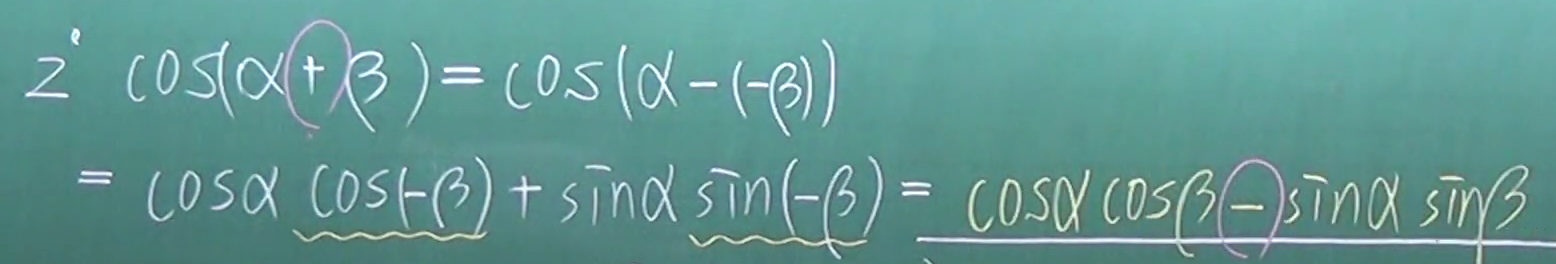 2° cos(α+β)=cos(α-(-β))
= cosα cos(-β)+sinα sin(-β)=cosα cosβ-sinα sinβ